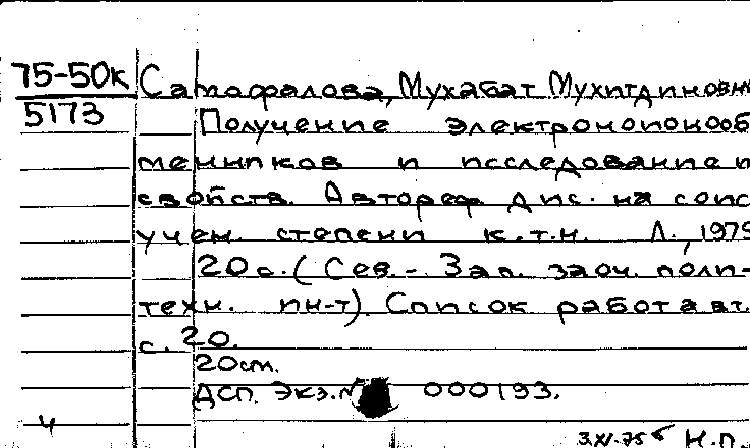 75-50к
5173
Сатафалова, Мухабат Мухитдиновн
Получение электроноионооб
менников и исследование и
свойств. Автореф. дис. на соис
учен. степени к.т.н. Л., 1975
20 с. (Сев.-Зап. заоч. поли-
техн. ин-т). Список работ авт.
с. 20.
20 см.
ДСП. Экз. № 000193.
ч
3.XI-75 б Н.П.